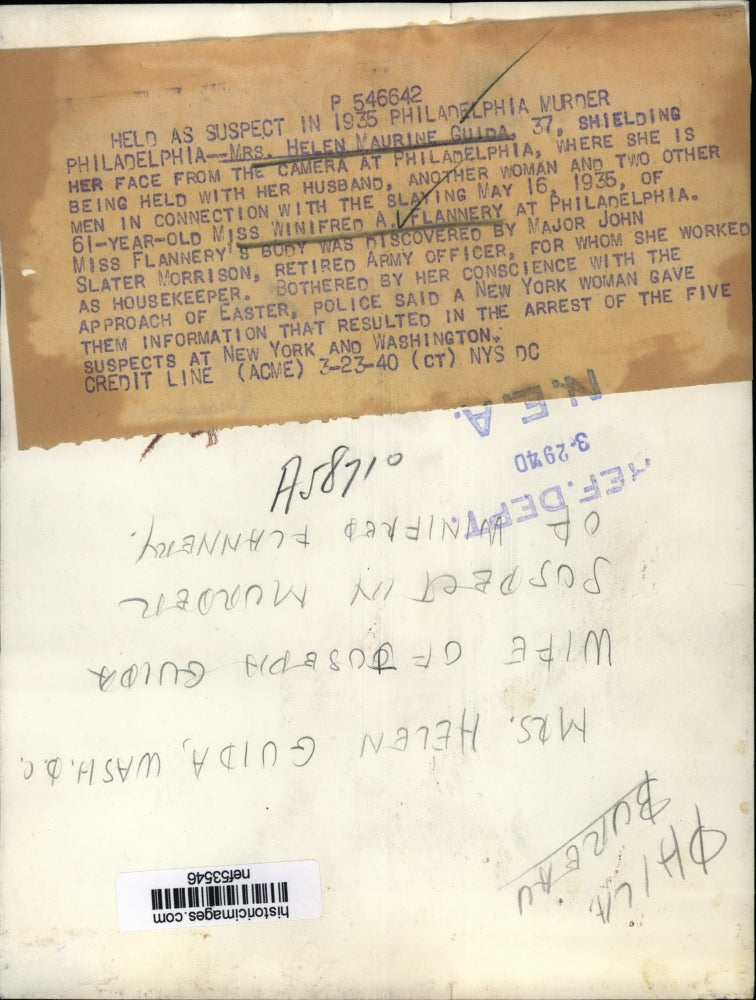 P 546642
HELD AS SUSPECT IN 1935 PHILADELPHIA MURDER
PHILADELPHIA--MRS. HELEN MAURINE GUIDA, 37, SHIELDING
HER FACE FROM THE CAMERA AT PHILADELPHIA, WHERE SHE IS
BEING HELD WITH HER HUSBAND, ANOTHER WOMAN AND TWO OTHER
MEN IN CONNECTION WITH THE SLAYING MAY 16, 1935, OF
61-YEAR-OLD MISS WINIFRED A. FLANNERY AT PHILADELPHIA.
MISS FLANNERY'S BODY WAS DISCOVERED BY MAJOR JOHN
SLATER MORRISON, RETIRED ARMY OFFICER, FOR WHOM SHE WORKED
AS HOUSEKEEPER. BOTHERED BY HER CONSCIENCE WITH THE
APPROACH OF EASTER, POLICE SAID A NEW YORK WOMAN GAVE
THEM INFORMATION THAT RESULTED IN THE ARREST OF THE FIVE
SUSPECTS AT NEW YORK AND WASHINGTON.
CREDIT LINE (ACME) 3-23-40 (CT) NYS DC
A58710
REF. DEPT.
3-2940
N.E.A.
PHILA.
BUREAU
MRS. HELEN GUIDA, WASH. D.C.
WIFE OF JOSEPH GUIDA
SUSPECT IN MURDER
OF WINIFRED FLANNERY.
historicimages.com
nef53546